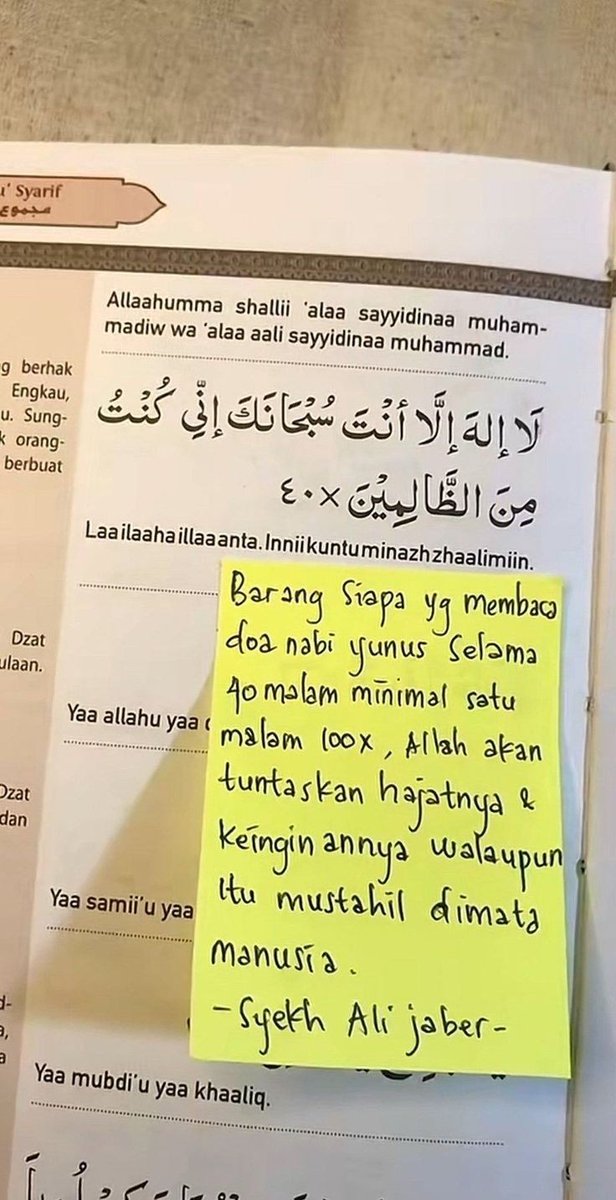 u' Syarif
مجموع
g berhak
Engkau,
u. Sung-
k orang-
berbuat
Dzat
ulaan.
Dzat
dan
Allaahumma shallii 'alaa sayyidinaa muham-
madiw wa 'alaa aali sayyidinaa muhammad.
لَا إِلهَ إِلَّا أَنْتَ سُبْحَانَكَ إِنِّي كُنْتُ
مِنَ الظَّالِمِيْنَ ×٤٠
Laa ilaaha illaa anta. Innii kuntu minazh zhaalimiin.
Barang siapa yg membaca
doa nabi yunus selama
40 malam minimal satu
malam 100x, Allah akan
tuntaskan hajatnya &
keinginannya walaupun
itu mustahil dimata
manusia.
-Syekh Ali jaber-
Yaa allahu yaa
Yaa samii'u yaa
Yaa mubdi'u yaa khaaliq.